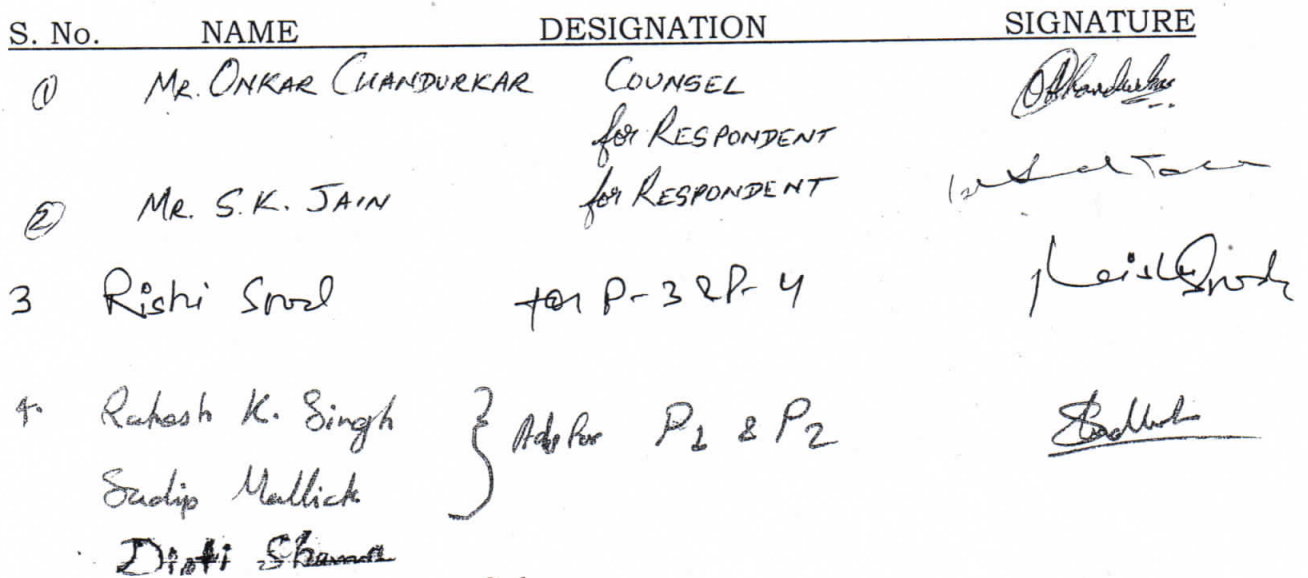 S. No. NAME DESIGNATION SIGNATURE
① Mr. ONKAR CHANDURKAR COUNSEL
for RESPONDENT
② MR. S.K. JAIN for RESPONDENT
3 Rishi Sood for P-3 & P-4
4. Rakesh K. Singh
Adv for P1 & P2
Sudip Mallick
Dipti Sharma